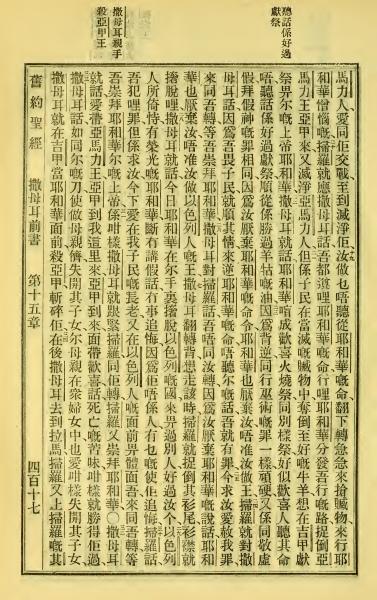 聽話係好過
獻祭
撒母耳親手
殺亞甲王
馬力人愛同佢交戰至到滅淨佢汝做乜唔聽從耶和華嘅命翻下轉急急來搶贓物來行耶
和華憎惱嘅掃羅就應撒母耳話吾都遵哩耶和華嘅命行哩耶和華分發吾行嘅路捉倒亞
馬力王亞甲來又滅淨亞馬力人但係子民在當滅嘅贓物中奪倒至好嘅牛羊想在吉甲獻
祭畀尔嘅上帝耶和華撒母耳話耶和華成歡喜火燒祭同別樣祭好似歡喜人聽其命
唔聽話係好過獻祭順從係勝過羊牯嘅油因為背逆同行巫術嘅罪一樣頑硬又係同敬虛
假拜假神嘅罪相同因為汝厭棄耶和華嘅命令耶和華也厭棄汝唔准汝做王掃羅就對撒
母耳話因為吾畏子民就順其情來逆耶和華嘅命唔聽尔嘅話吾就有罪今求汝愛赦我罪
來同吾轉等吾崇拜耶和華撒母耳對掃羅話吾唔同汝轉因為汝厭棄耶和華嘅說話耶和
華也厭棄汝唔准汝做以色列人嘅王撒母耳翻轉背想走該時掃羅就捉倒其衫尾衫襟就
擼脫哩撒母耳就話今日耶和華在尔手裏擼脫以色列嘅國來畀過別人好過汝个以色列
人所倚恃有榮光嘅耶和華斷冇講假話冇事追悔因為佢唔係人有乜嘅使佢追悔掃羅話
吾犯哩罪但係求汝今下愛在我子民嘅長老又在以色列人嘅面前畀體面吾來同吾轉等
吾崇拜耶和華尔嘅上帝係咁樣撒母耳就跟緊掃羅同佢轉掃羅又崇拜耶和華〇撒母耳
就話愛帶亞馬力王亞甲到我這里來亞甲到來面帶歡喜話死亡嘅苦味咁樣就勝得佢過
撒母耳話如同尔嘅刀使做母親儕失開其子女尔母親在衆婦女中也愛咁樣失開其子女
撒母耳就在吉甲當耶和華面前殺亞甲斬碎佢在後撒母耳去到拉馬掃羅又上掃羅嘅其
舊約聖經 撒母耳前書 第十五章 四百十七